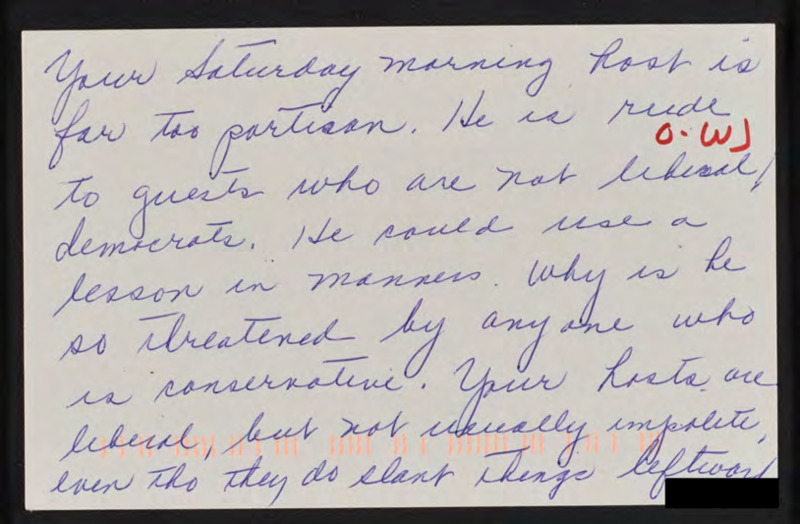 Your Saturday morning host is
far too partisan. He is rude
O.WJ
to guests who are not liberal/
democrats. He could use a
lesson in manners. Why is he
so threatened by anyone who
is conservative. Your hosts are
liberal, but not usually impolite,
even tho they do slant things leftward